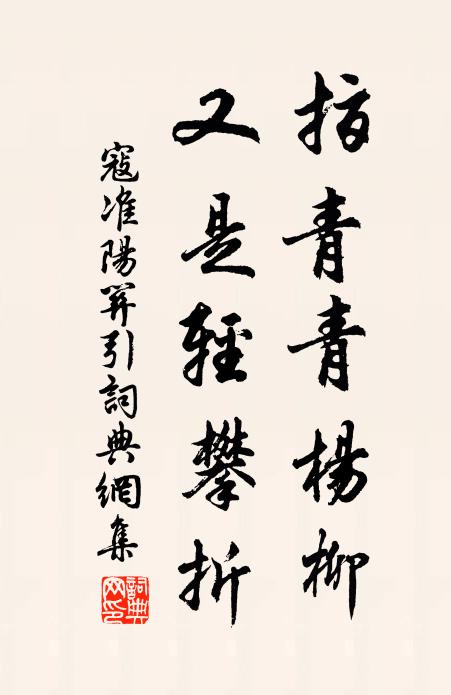 指青青楊柳
又是輕攀折
寇准陽関引詞典網集
詞典網印